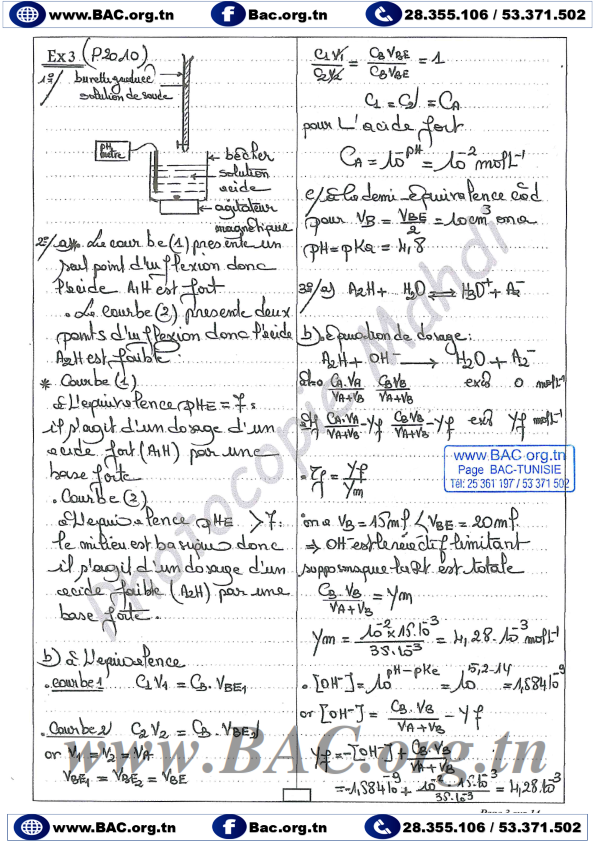 www.BAC.org.tn Bac.org.tn 28.355.106 / 53.371.502
Ex3 (P2010)
1°/ burette graduée
solution de soude
pH
mètre
bécher
solution
acide
agitateur
magnétique
2°/ a/* Le courbe (1) presente un
seul point d'inflexion donc
l'acide A1H est fort
• Le courbe (2) presente deux
points d'inflexion donc l'acide
A2H est faible.
* Courbe (1)
à l'equivalence pHE = 7 :
il s'agit d'un dosage d'un
acide fort (A1H) par une
base forte
• Courbe (2)
à l'equivalence pHE > 7 :
le milieu est basique donc
il s'agit d'un dosage d'un
acide faible (A2H) par une
base forte.
b) à l'equivalence
• courbe 1 C1V1 = CB.VBE1
• Courbe 2 C2V2 = CB.VBE2
or V1 = V2 = VA
VBE1 = VBE2 = VBE
C1V1/C2V2 = CB VBE/CB VBE = 1
C1 = C2 = CA
pour l'acide fort
CA = 10^-pH = 10^-2 mol L^-1
c/ à la demi-équivalence càd
pour VB = VBE/2 = 10cm³ on a
pH = pKa = 4,8
3°/a) A2H + H2O ⇌ H3O+ + A2-
b) Equation de dosage :
A2H + OH- → H2O + A2-
à t=0 CA.VA/VA+VB CB VB/VA+VB excès 0 mol L^-1
à tf CA.VA/VA+VB - yf CB.VB/VA+VB - yf excès yf mol L^-1
• τf = yf/ym
on a VB = 15mL < VBE = 20mL
⇒ OH- est le réactif limitant
supposons que la Rt est totale
CB.VB/VA+VB = ym
ym = 10^-2 × 15.10^-3/35.10^-3 = 4,28.10^-3 mol L^-1
• [OH-] = 10^pH-pKe = 10^5,2-14 = 1,584.10^-9
or [OH-] = CB.VB/VA+VB - yf
yf = -[OH-] + CB.VB/VA+VB
= -1,584.10^-9 + 10^-2.15.10^-3/35.10^-3 = 4,28.10^-3
www.BAC.org.tn
Page BAC-TUNISIE
Tél: 25 361 197 / 53 371 502
Photocopie Mahdi
www.BAC.org.tn
www.BAC.org.tn Bac.org.tn 28.355.106 / 53.371.502